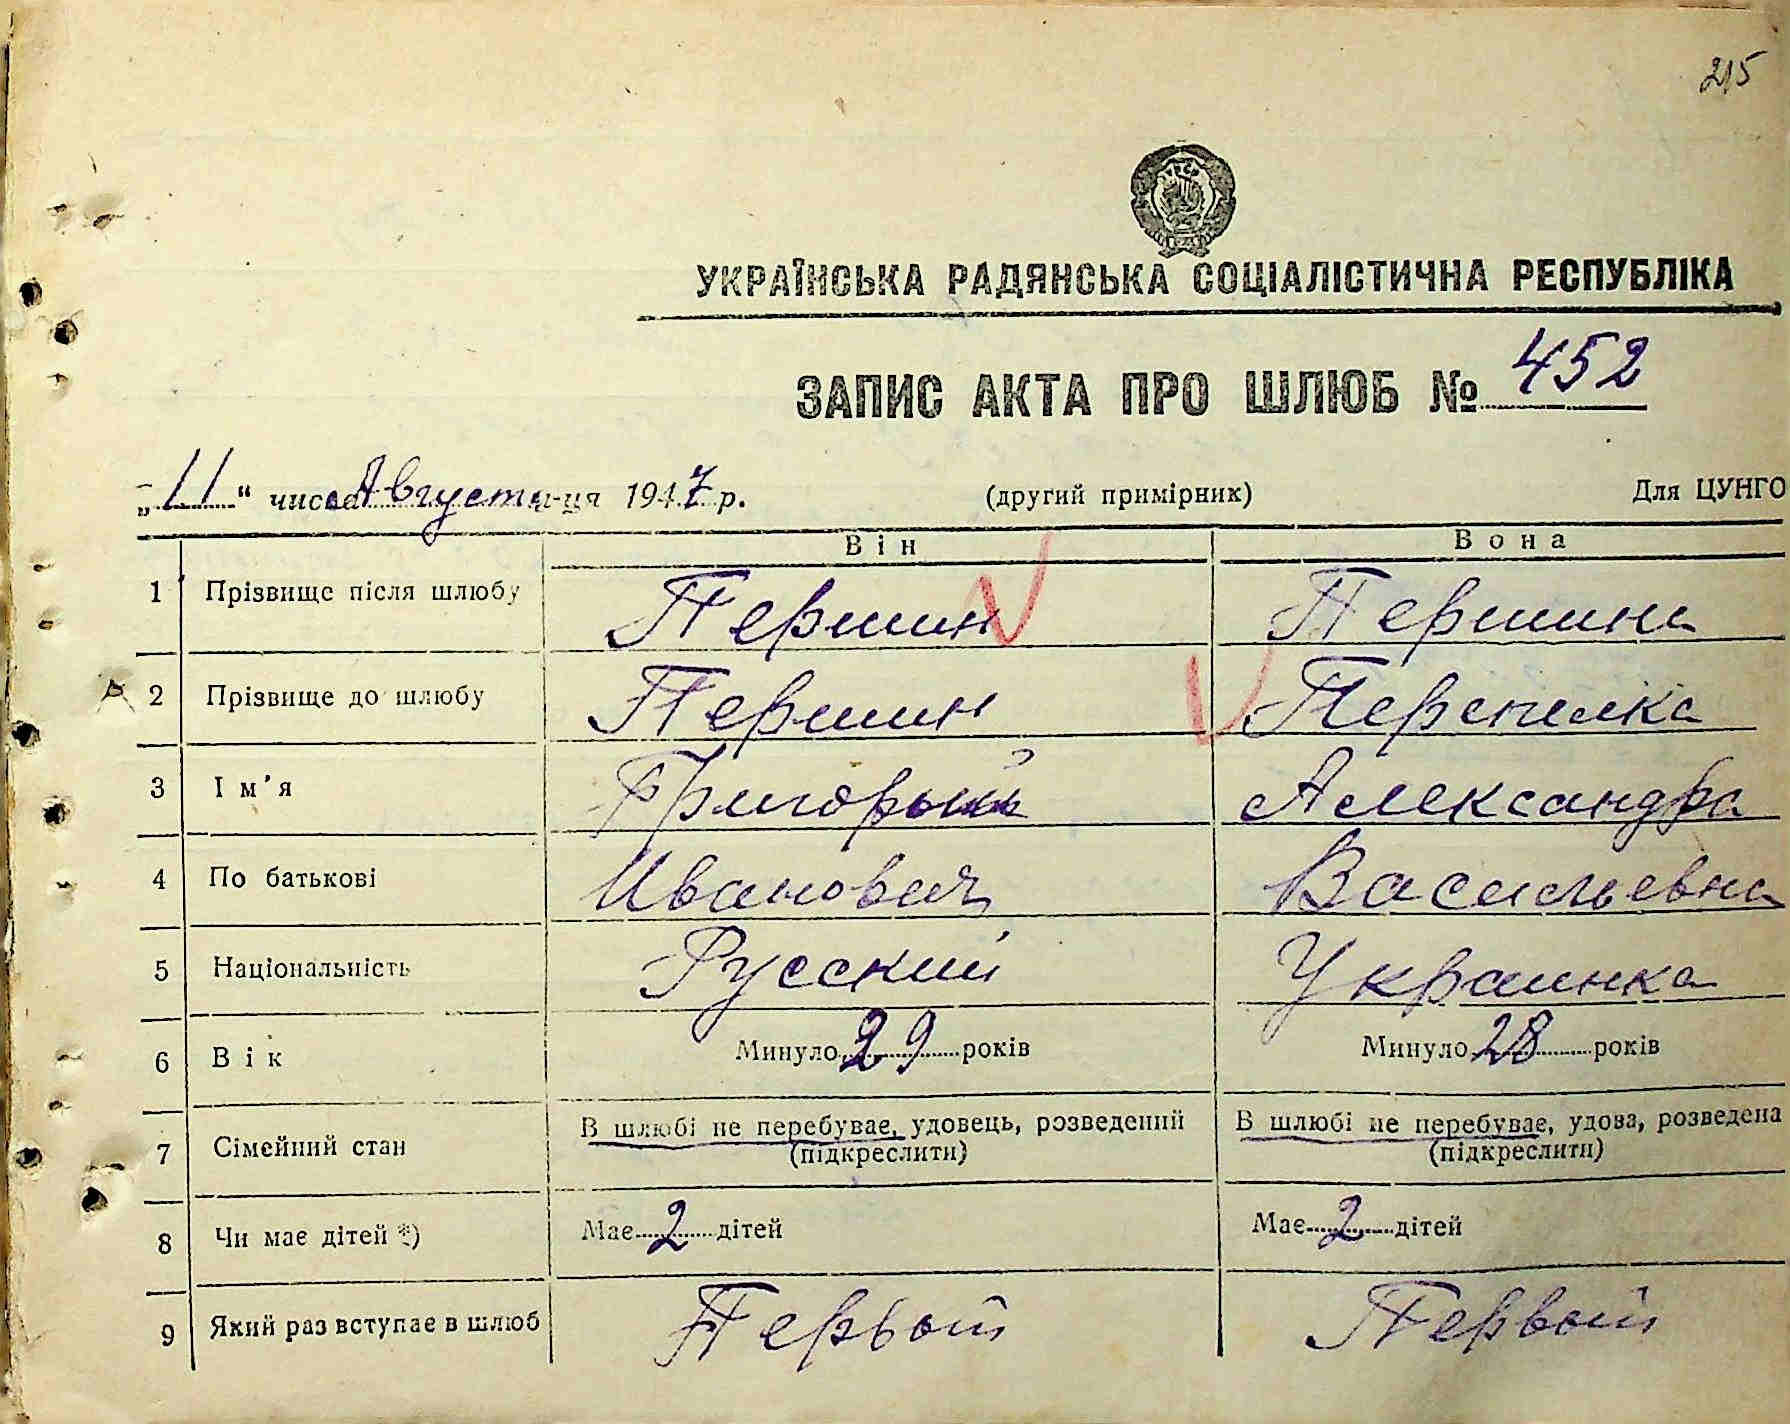 215
УКРАЇНСЬКА РАДЯНСЬКА СОЦІАЛІСТИЧНА РЕСПУБЛІКА
ЗАПИС АКТА ПРО ШЛЮБ № 452
„11“ числа Августа м-ця 1947 р. (другий примірник) Для ЦУНГО
Він Вона
1 Прізвище після шлюбу Першин Першина
2 Прізвище до шлюбу Першин Перепелка
3 Ім'я Григорий Александра
4 По батькові Иванович Васильевна
5 Національність Русский Украинка
6 Вік Минуло 29 років Минуло 28 років
7 Сімейний стан В шлюбі не перебуває, удовець, розведений В шлюбі не перебуває, удова, розведена
(підкреслити) (підкреслити)
8 Чи має дітей *) Має 2 дітей Має 2 дітей
9 Який раз вступає в шлюб Первый Первый